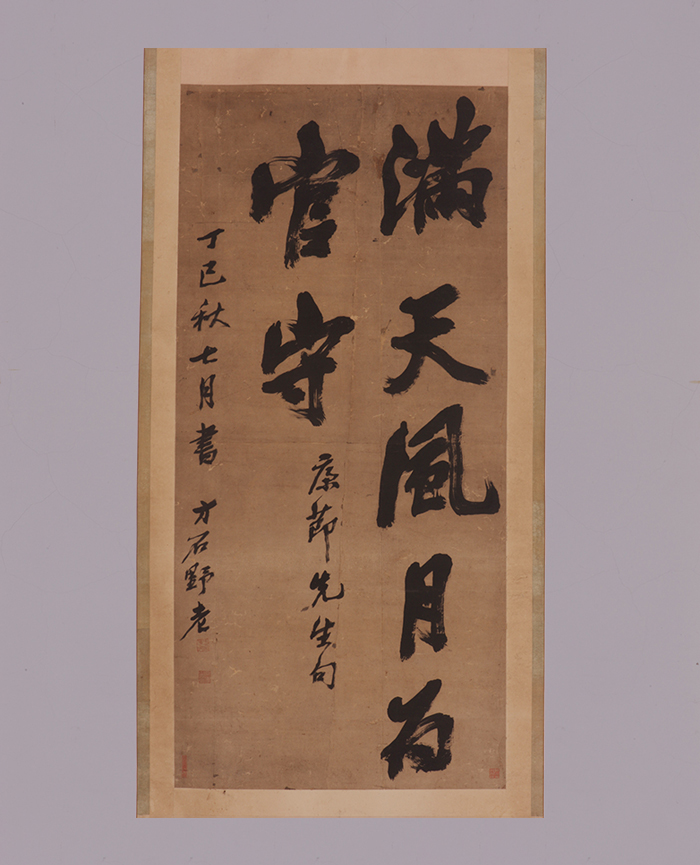 满天風月为
官守
康節先生句
丁巳秋七月書 方石野老